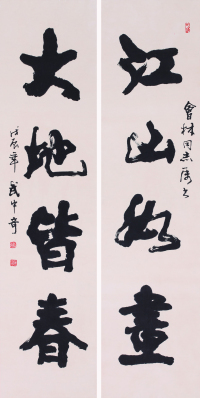 江山如畫
會林同志屬書
大地皆春
戊辰年武中奇